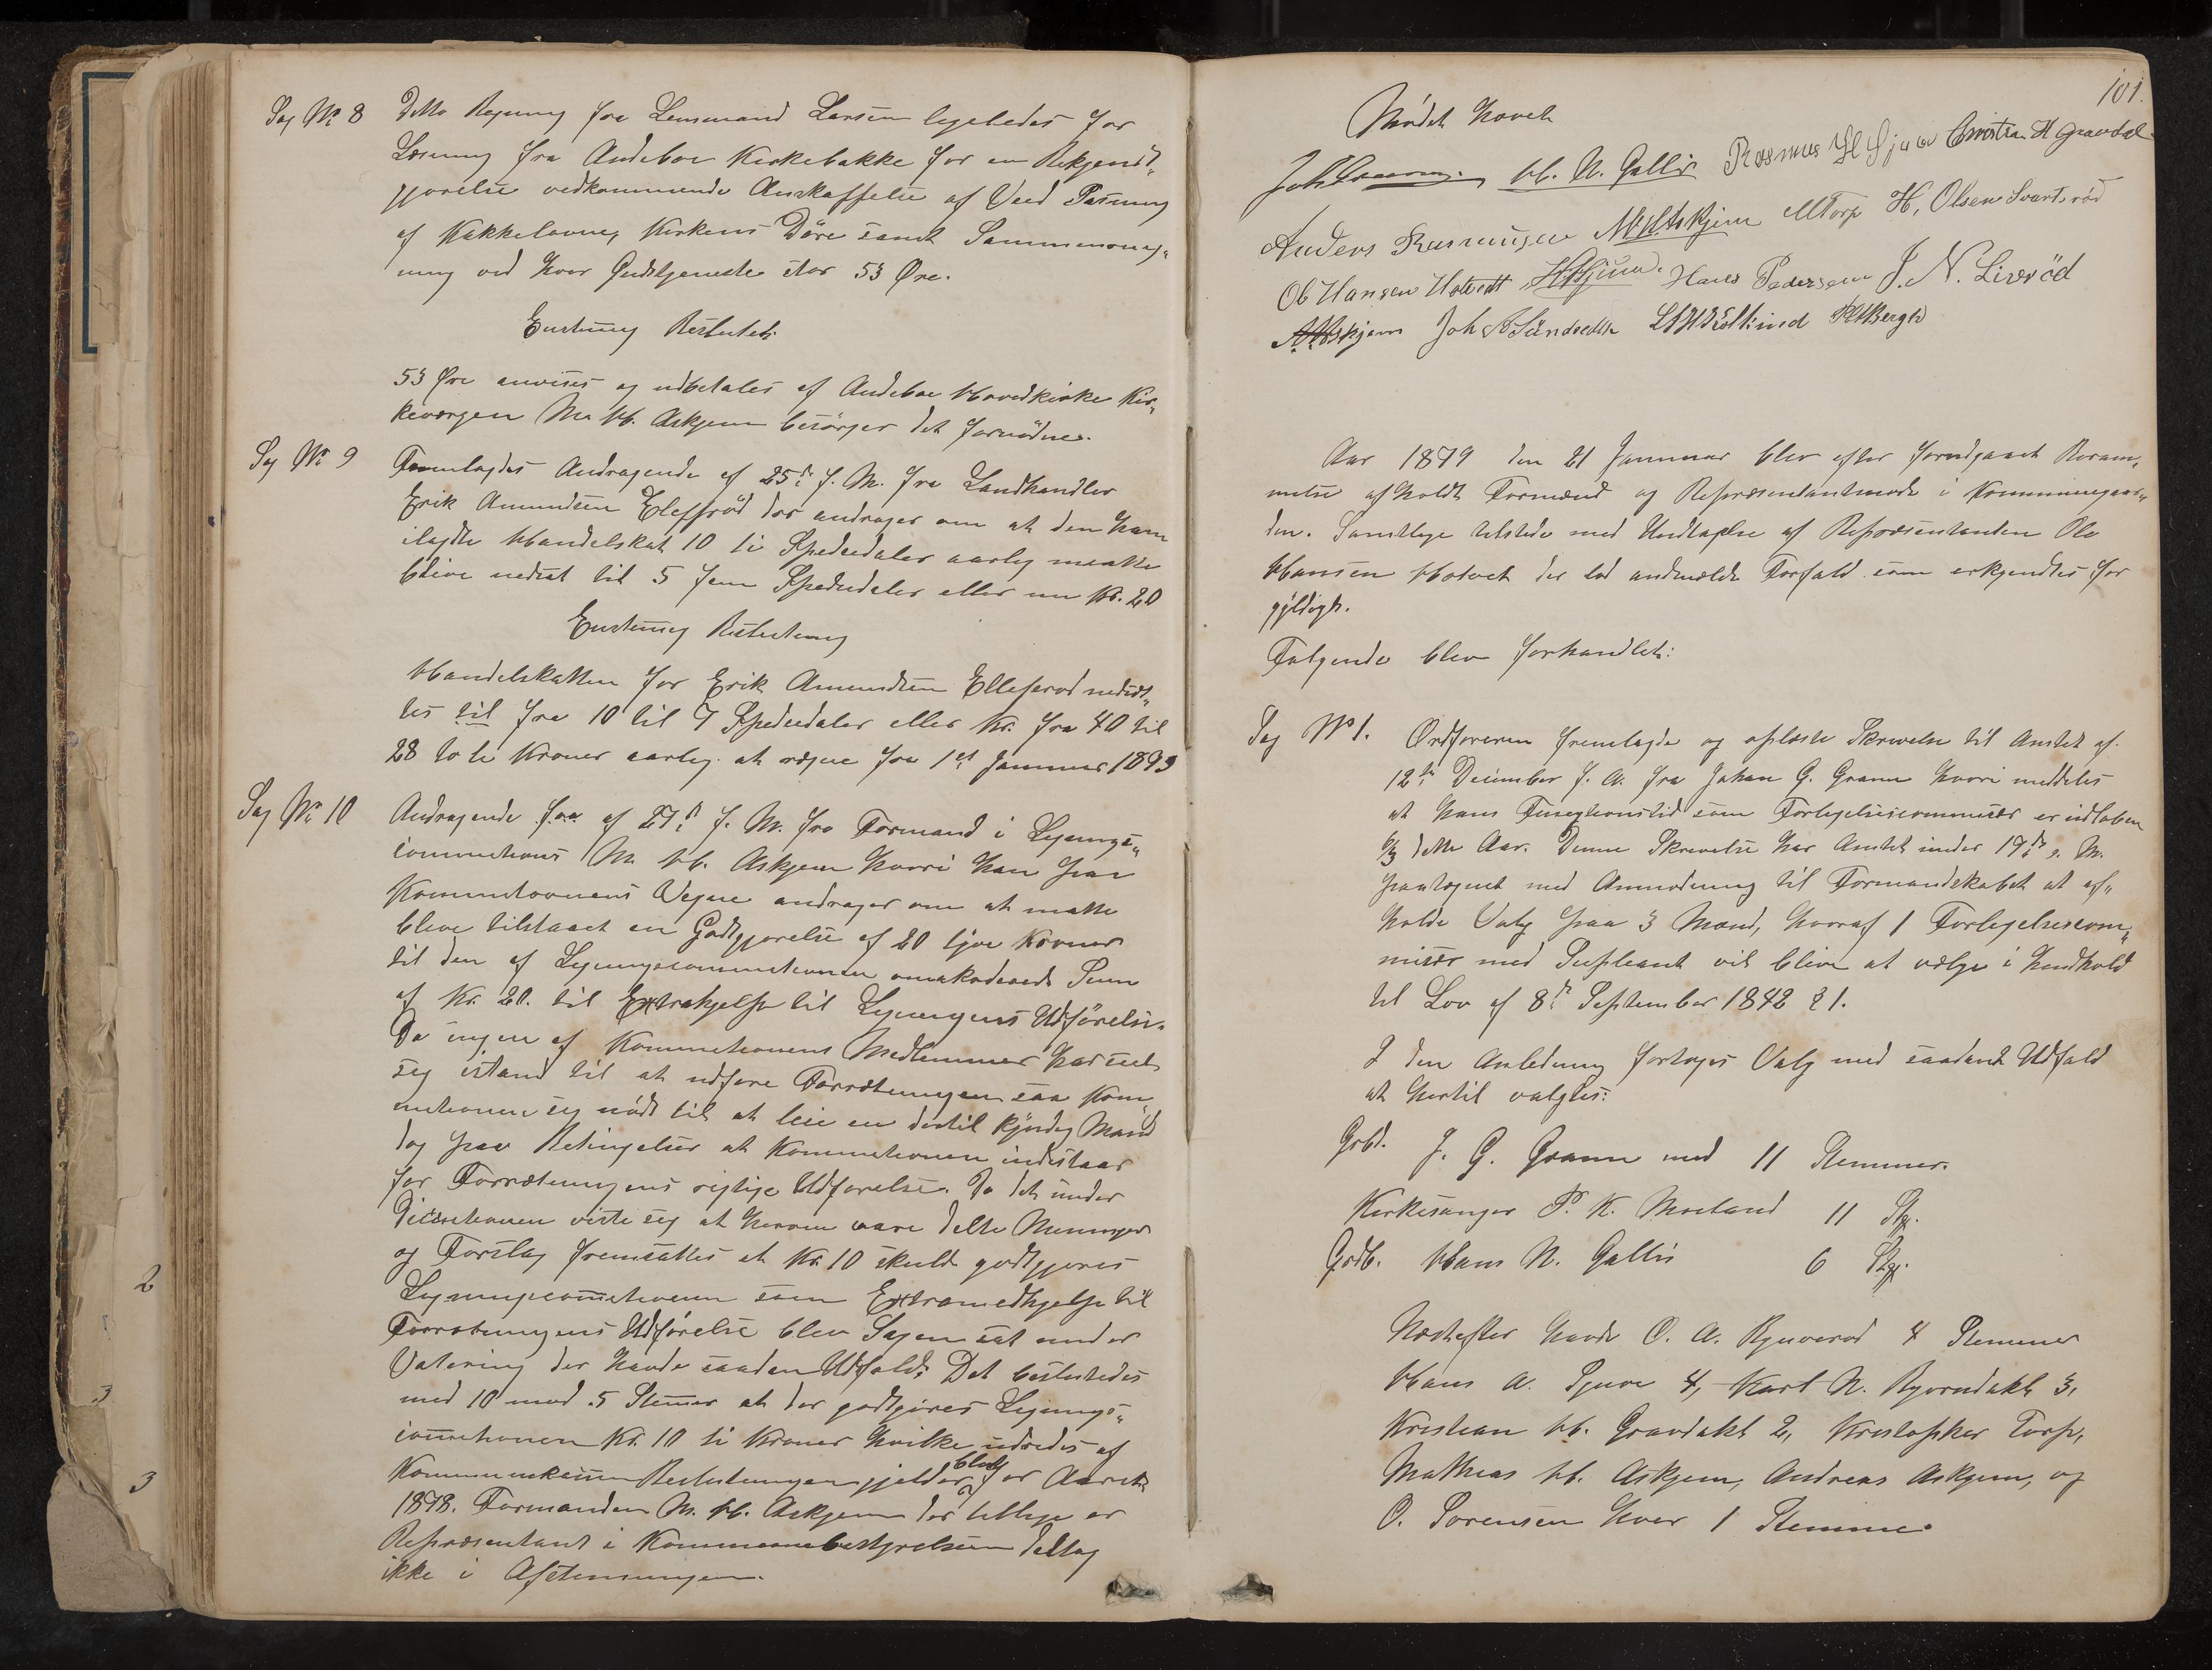 Sag No 8 Ditto Regning fra Lensmand Larsen ligeledes for
Læsning fra Andebøe Kirkebakke for en Bekjendt„
gjørelse vedkommende Anskaffelse af Ved Pasning
af Kakkelovne, Kirkens Döre samt Sammenring„
ning ved hver Gudstjeneste stor 53 Øre.
Enstemig Besluttet:
53 Øre anvises og udbetales af Andeboe Hovedkirke Kir„
keværgen M. H. Askjem besörger det fornödne.
Sag No 9 Fremlagdes Andragende af 25de f. M. fra Landhandler
Erik Amundsen Ellefsröd der andrager om at den ham
ilagte Handelskat 10 ti Speciedaler aarlig maatte
blive nedsat til 5 fem Speciedaler eller nu Kr. 20
Enstemig Beslutning
Handelskatten for Erik Amundsen Ellefsrød nedsæt„
tes til fra 10 til 7 Speciedaler eller Kr. fra 40 til
28 Kroner aarlig at regne fra 1st Januar 1879
Sag No 10 Andragende fra af 27de f. M. fra Formand i Lignings„
commissionens M. H. Askjem hvori han paa
Kommissionens Vegne andrager om at maatte
blive tilstaaet en Godtgjørelse af 20 tyve Kroner
til den af Ligningscommissionen Sum
af Kr. 20. til Extrahjelp til Ligningens Udførelse.
Da ingen af Kommissionens Medlemmer har seet
sig istand til at udføre Forretningen saa Kom„
missionen sig nödt til at leie en dertil kjöndig Mand
dog paa Betingelser at Kommissionen indestaar
for Forretningens rigtige Udførelse. Da det under
Discusionen viste sig at herom vare delte Meninger
og Forslag fremsattes at Kr. 10 skulde godtgjøres
Ligningscommissionen som Extramedhjelp til
Forretningens Udførelse blev Sagen sat under
Votering der havde saadan Udfald: Det besluttedes
med 10 mod 5 Stemer at der godtgjöres Lignings„
comissionen Kr. 10 ti Kroner hvilke udredes af
Kommunekassen Beslutningen gjelder blot for Aaret
1878. Formanden M. H. Askjem der tillige er
Repræsentant i Kommunebestyrelsen deltog
ikke i Afstemningen.
101.
Mödet hævet
H. N. Gallis Rasmus H Sjuve Christian H Gravdal
Anders Rasmusen MHAskjem MTorp H, Olsen Svartsrød
Ob Hansen Hotvedt Hans Pedersen J. N. Liverød
AAskjem Joh A Sundsette
Aar 1879 den 21 Januar blev efter forudgaaet Beram„
melse afholdt Formænd og Repræsentantmöde i Kommunegaar„
den. Samtlige tilstede med Undtagelse af Repræsentanten Ole
Hansen Hotvet der lod anmelde Forfald som erkjendtes for
gyldigt.
Følgende blev forhandlet:
Sag No 1. Ordføreren fremlagde og oplæste Skrivelse til Amtet af
12te December f. A. fra Johan G. Grann hvori meddeles
at hans Functionstid som Forligelsescommisær er udløben
dette Aar. Denne Skrivelse har Amtet under 19de s. M.
paategnet med Anmodning til Formandskabet at af„
holde Valg paa 3 Mænd, hvoraf 1 Forligelsescom„
misær med Supleant vil blive at vælge i Henhold
til Lov af 8de September 1842 § 1.
I den Anledning foretoges Valg med saadant Udfald
at hertil valgtes:
Grbd. J. G. Grann med 11 Stemmer.
Kirkesanger P. K. Morland 11 Stg.
Grdb. Hans N. Gallis 6 Stg.
Næstefter havde O. A. Bjuerød 4 Stemmer
Hans A. Sjuve 4, Karl N. Bjørndahl 3,
Kristian H. Gravdahl 2, Kristopher Torp,
Mathias H. Askjem, Andreas Askjem, og
O. Sørensen hver 1 Stemme.
2
3
3